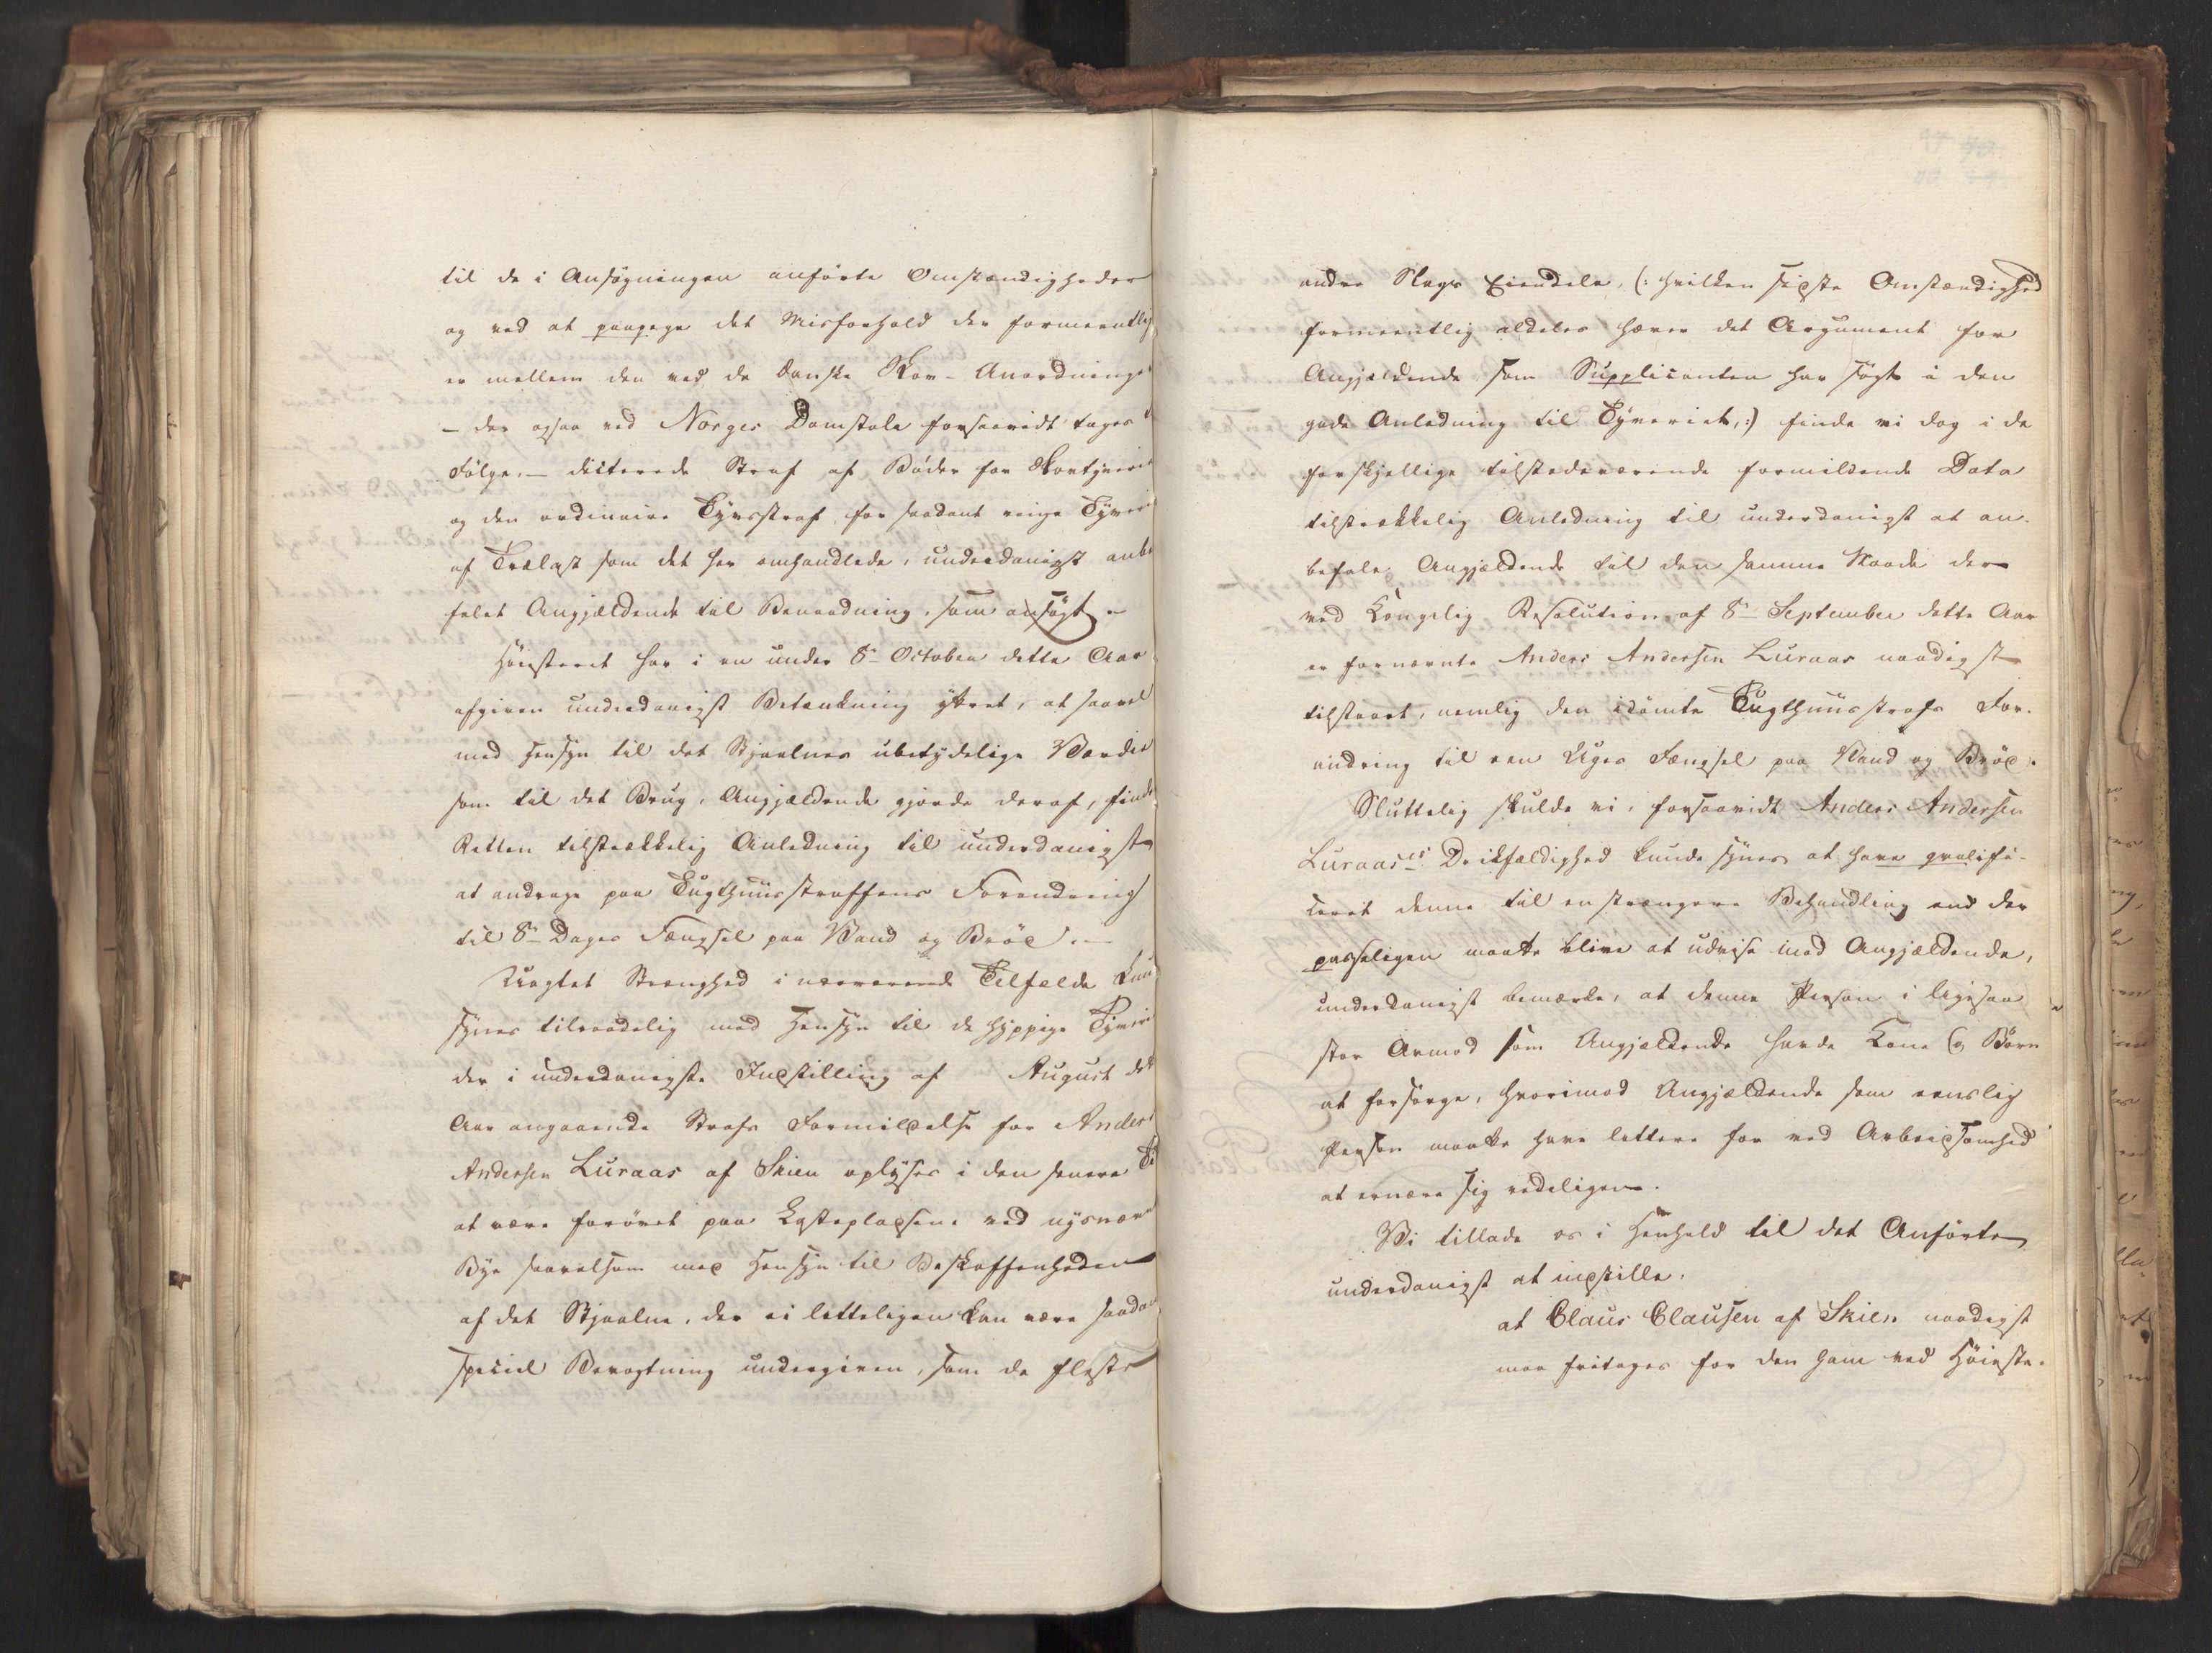 til de i Ansøgningen anførte Omstændigheder
og ved at paapege det Misforhold der formeentlig
er mellem den ved de danske Skov-Anordninge
– der ogsaa ved Norges Domstole forsaavidt tages t
Følge, – dicterede Straf af Bøder for Skovtyverie
og den ordinaire Tyvsstraf for saadant ringe Tyveri
af Trælast som det her omhandlede, underdanigst anbe
falet Angjældende til Benaadning, som ansøgt –
Høiesteret har i en under 8de October dette Aar
afgiven underdanigst Betænkning yttret, at saavel
med Hensyn til det Stjaalnes ubetydelige Værdie
som til det Brug, Angjældende gjorde deraf, finde
Retten tilstrækkelig Anledning til underdanigst
at andrage paa Tugthuusstraffens Forandring
til 8te Dages Fængsel paa Vand og Brød. –
Uagtet Strenghed i nærværende Tilfælde kun
synes tilraadelig med Hensyn til de hyppige Tyverie
der i underdanigste Indstilling af August dette
Aar angaaende Strafs Formildelse for Anders
Andersen Luraas af Skien oplyses i den senere Ti
at være forøvet paa Lastepladsene ved nysnævn
Bye saavelsom med Hensyn til Beskaffenheden
af det Stjaalne, der ei letteligen kan være saadan
speciel Bevogtning undergiven, som de fleste
andre Slags Eiendele, (: hvilken sidste Omstændighed
formeentlig aldeles hæver det Argument for
Angjældende som Supplicanten har søgt i den
gode Anledning til Tyveriet, :) finde vi dog i de
forskjellige tilstedeværende formildende Data
tilstrækkelig Anledning til underdanigst at an-
befale Angjældende til den samme Naade der
ved Kongelig Resolution af 8de September dette Aar
er fornævnte Anders Andersen Luraas naadigst
tilstaaet, nemlig den idømte Tugthuusstrafs For-
andring til een Uges Fængsel paa Vand og Brød.
Sluttelig skulde vi, forsaavidt Anders Andersen
Luraases Drikfældighed kunde synes at have qvalifi-
ceret denne til en strængere Behandling end der
passeligen maatte blive at udvise mod Angjældende,
underdanigst bemærke, at denne Person i ligesaa
stor Armod som Angjældende havde Kone og Børn
at forsørge, hvorimod Angjældende som eenslig
Person maatte have lettere for ved Arbeidsomhed
at ernære sig redeligen.
Vi tillade os i Henhold til det Anførte
underdanigst at indstille,
at Claus Clausen af Skien naadigst
maa fritages for den ham ved Høieste-